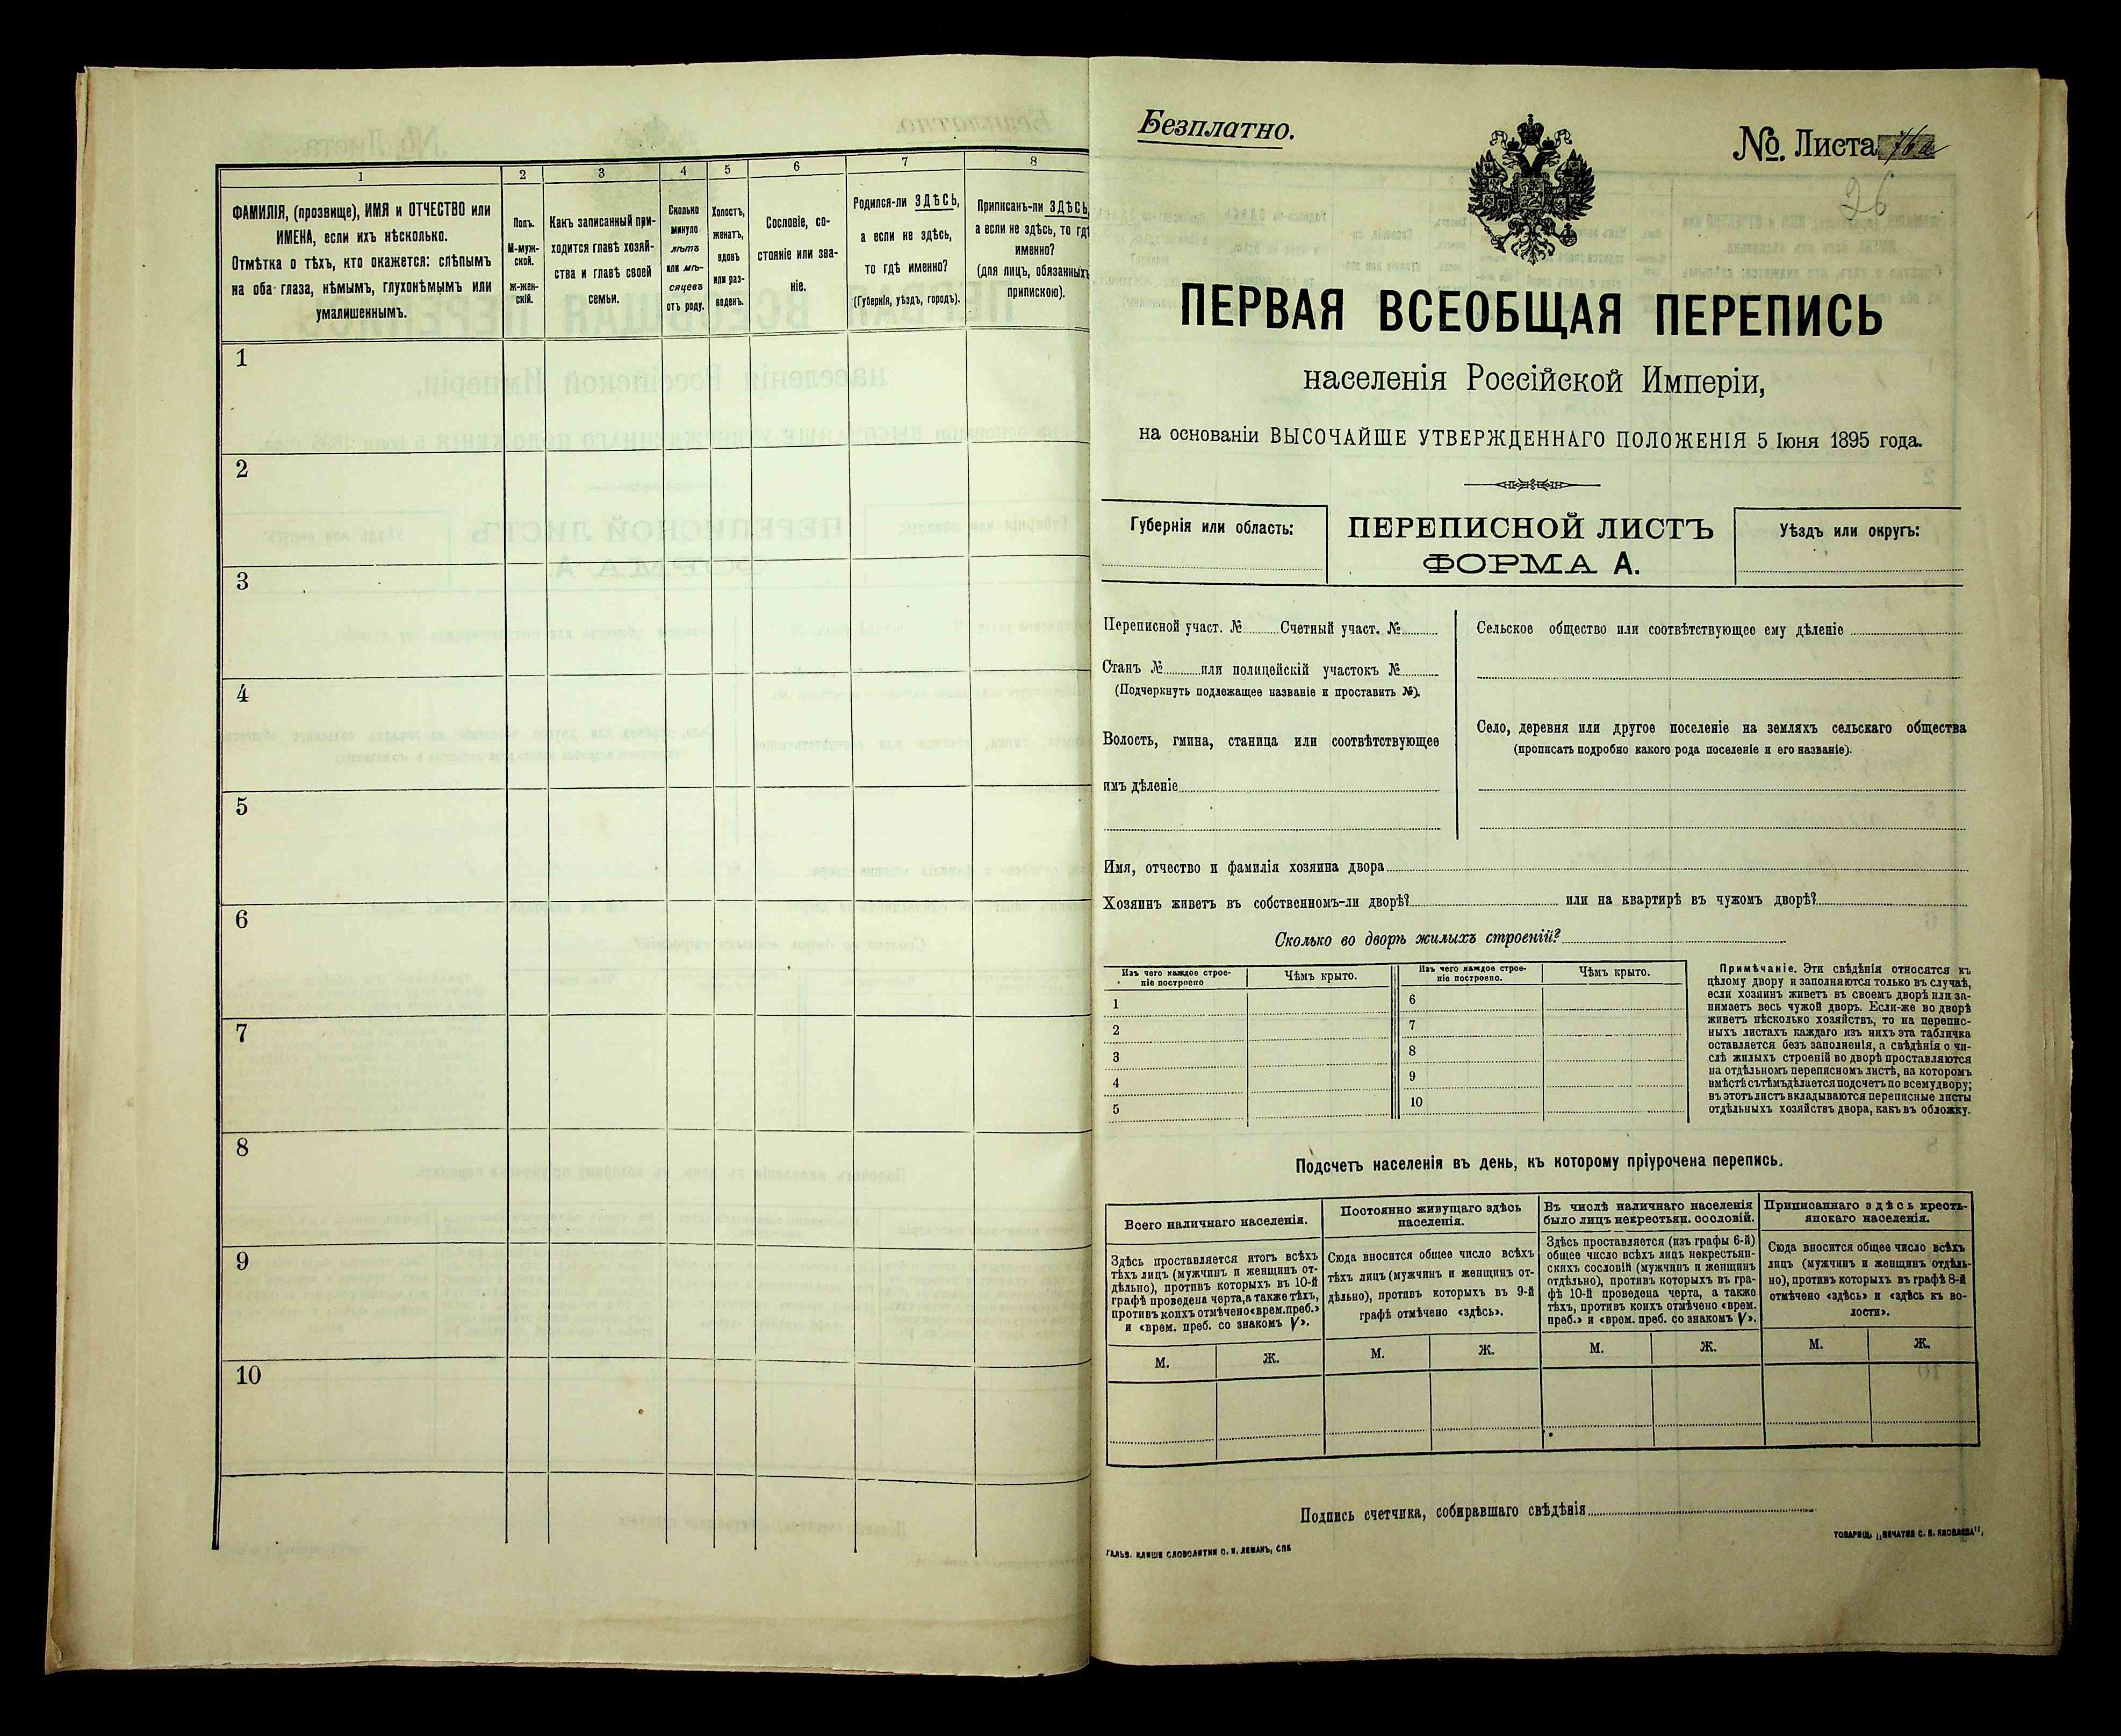 1
2
3
4
5
6
7
8
ФАМИЛІЯ, (прозвище), ИМЯ и ОТЧЕСТВО или
ИМЕНА, если ихъ нѣсколько.
Отмѣтка о тѣхъ, кто окажется: слѣпымъ
на оба глаза, нѣмымъ, глухонѣмымъ или
умалишеннымъ.
Полъ.
М-муж-
ской.
Ж-жен-
скій.
Какъ записанный при-
ходится главѣ хозяй-
ства и главѣ своей
семьи.
Сколько
минуло
лѣтъ
или мѣ-
сяцевъ
отъ роду.
Холостъ,
женатъ,
вдовъ
или раз-
веденъ.
Сословіе, со-
стояніе или зва-
ніе.
Родился-ли ЗДѢСЬ,
а если не здѣсь,
то гдѣ именно?
(Губернія, уѣздъ, городъ).
Приписанъ-ли ЗДѢСЬ,
а если не здѣсь, то гдѣ
именно?
(для лицъ, обязанныхъ
припискою).
1
2
3
4
5
6
7
8
9
10
Безплатно.
№. Листа
26
ПЕРВАЯ ВСЕОБЩАЯ ПЕРЕПИСЬ
населенія Россійской Имперіи,
на основаніи ВЫСОЧАЙШЕ УТВЕРЖДЕННАГО ПОЛОЖЕНІЯ 5 Іюня 1895 года.
Губернія или область:
ПЕРЕПИСНОЙ ЛИСТЪ
ФОРМА А.
Уѣздъ или округъ:
Переписной участ. № Счетный участ. №
Станъ № или полицейскій участокъ №
(Подчеркнуть подлежащее названіе и проставить №).
Волость, гмина, станица или соотвѣтствующее
имъ дѣленіе
Сельское общество или соотвѣтствующее ему дѣленіе
Село, деревня или другое поселеніе на земляхъ сельскаго общества
(прописать подробно какого рода поселеніе и его названіе).
Имя, отчество и фамилія хозяина двора
Хозяинъ живетъ въ собственномъ-ли дворѣ? или на квартирѣ въ чужомъ дворѣ?
Сколько во дворѣ жилыхъ строеній?
Изъ чего каждое строе-
ніе построено
Чѣмъ крыто.
Изъ чего каждое строе-
ніе построено.
Чѣмъ крыто.
1
2
3
4
5
6
7
8
9
10
Примѣчаніе. Эти свѣдѣнія относятся къ
цѣлому двору и заполняются только въ случаѣ,
если хозяинъ живетъ въ своемъ дворѣ или за-
нимаетъ весь чужой дворъ. Если-же во дворѣ
живетъ нѣсколько хозяйствъ, то на перепис-
ныхъ листахъ каждаго изъ нихъ эта табличка
оставляется безъ заполненія, а свѣдѣнія о чи-
слѣ жилыхъ строеній во дворѣ проставляются
на отдѣльномъ переписномъ листѣ, на которомъ
вмѣстѣ сътѣмъ дѣлается подсчетъ по всему двору;
въ этотъ листъ вкладываются переписные листы
отдѣльныхъ хозяйствъ двора, какъ въ обложку.
Подсчетъ населенія въ день, къ которому пріурочена перепись.
Всего наличнаго населенія.
Постоянно живущаго здѣсь
населенія.
Въ числѣ наличнаго населенія
было лицъ некрестьян. сословій.
Приписаннаго здѣсь кресть-
янскаго населенія.
Здѣсь проставляется итогъ всѣхъ
тѣхъ лицъ (мужчинъ и женщинъ от-
дѣльно), противъ которыхъ въ 10-й
графѣ проведена черта, а также тѣхъ,
противъ коихъ отмѣчено «врем. преб.»
и «врем. преб. со знакомъ V».
Сюда вносится общее число всѣхъ
тѣхъ лицъ (мужчинъ и женщинъ от-
дѣльно), противъ которыхъ въ 9-й
графѣ отмѣчено «здѣсь».
Здѣсь проставляется (изъ графы 6-й)
общее число всѣхъ лицъ некрестьян-
скихъ сословій (мужчинъ и женщинъ
отдѣльно), противъ которыхъ въ гра-
фѣ 10-й проведена черта, а также
тѣхъ, противъ коихъ отмѣчено «врем.
преб.» и «врем. преб. со знакомъ V».
Сюда вносится общее число всѣхъ
лицъ (мужчинъ и женщинъ отдѣль-
но), противъ которыхъ въ графѣ 8-й
отмѣчено «здѣсь» и «здѣсь къ во-
лости».
М. Ж. М. Ж. М. Ж. М. Ж.
Подпись счетчика, собиравшаго свѣдѣнія
ГАЛЬВ. КЛИШЕ СЛОВОЛИТНИ О. И. ЛЕМАНЪ, СПБ
ТОВАРИЩ. „ПЕЧАТНЯ С. П. ЯКОВЛЕВА",